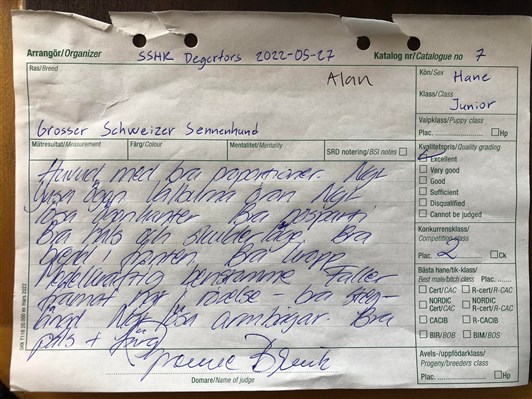 Arrangör/Organizer SSHK Degerfors 2022-05-27 Katalog nr/Catalogue no 7
Ras/Breed Alan Kön/Sex Hane
Klass/Class Junior
Grosser Schweizer Sennenhund
Valpklass/Puppy class
Plac. Hp
Mätresultat/Measurement Färg/Colour Mentalitet/Mentality SRD notering/BSI notes
Kvalitetspris/Quality grading
Excellent
Very good
Good
Sufficient
Disqualified
Cannot be judged
Huvud med bra proportioner. Ngt
ljusa ögon
lösa Bra nosparti
Bra hals och skulderläge. Bra
i fronten. Bra kropp
benstamme Faller
framåt rörelse bra steg-
längd Ngt lösa armbågar. Bra
päls + färg
Konkurrensklass/
Competition class
Plac. 2 Ck
Bästa hane/tik-klass/
Best male/bitch class Plac.
Cert/CAC R-cert/R-CAC
NORDIC Cert/CAC NORDIC R-Cert/R-CAC
CACIB R-CACIB
BIR/BOB BIM/BOS
Avels-/uppfödarklass/
Progeny/breeders class
Plac. Hp
Domare/Name of judge